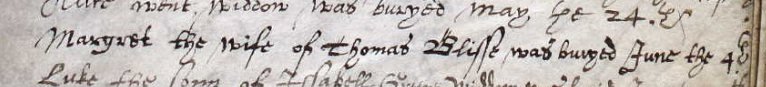 went, widdow was buryed may, ye 24. th
Margret the wife of Thomas Blisse was buryed June the 4. th
Luke the sonn of Issabell